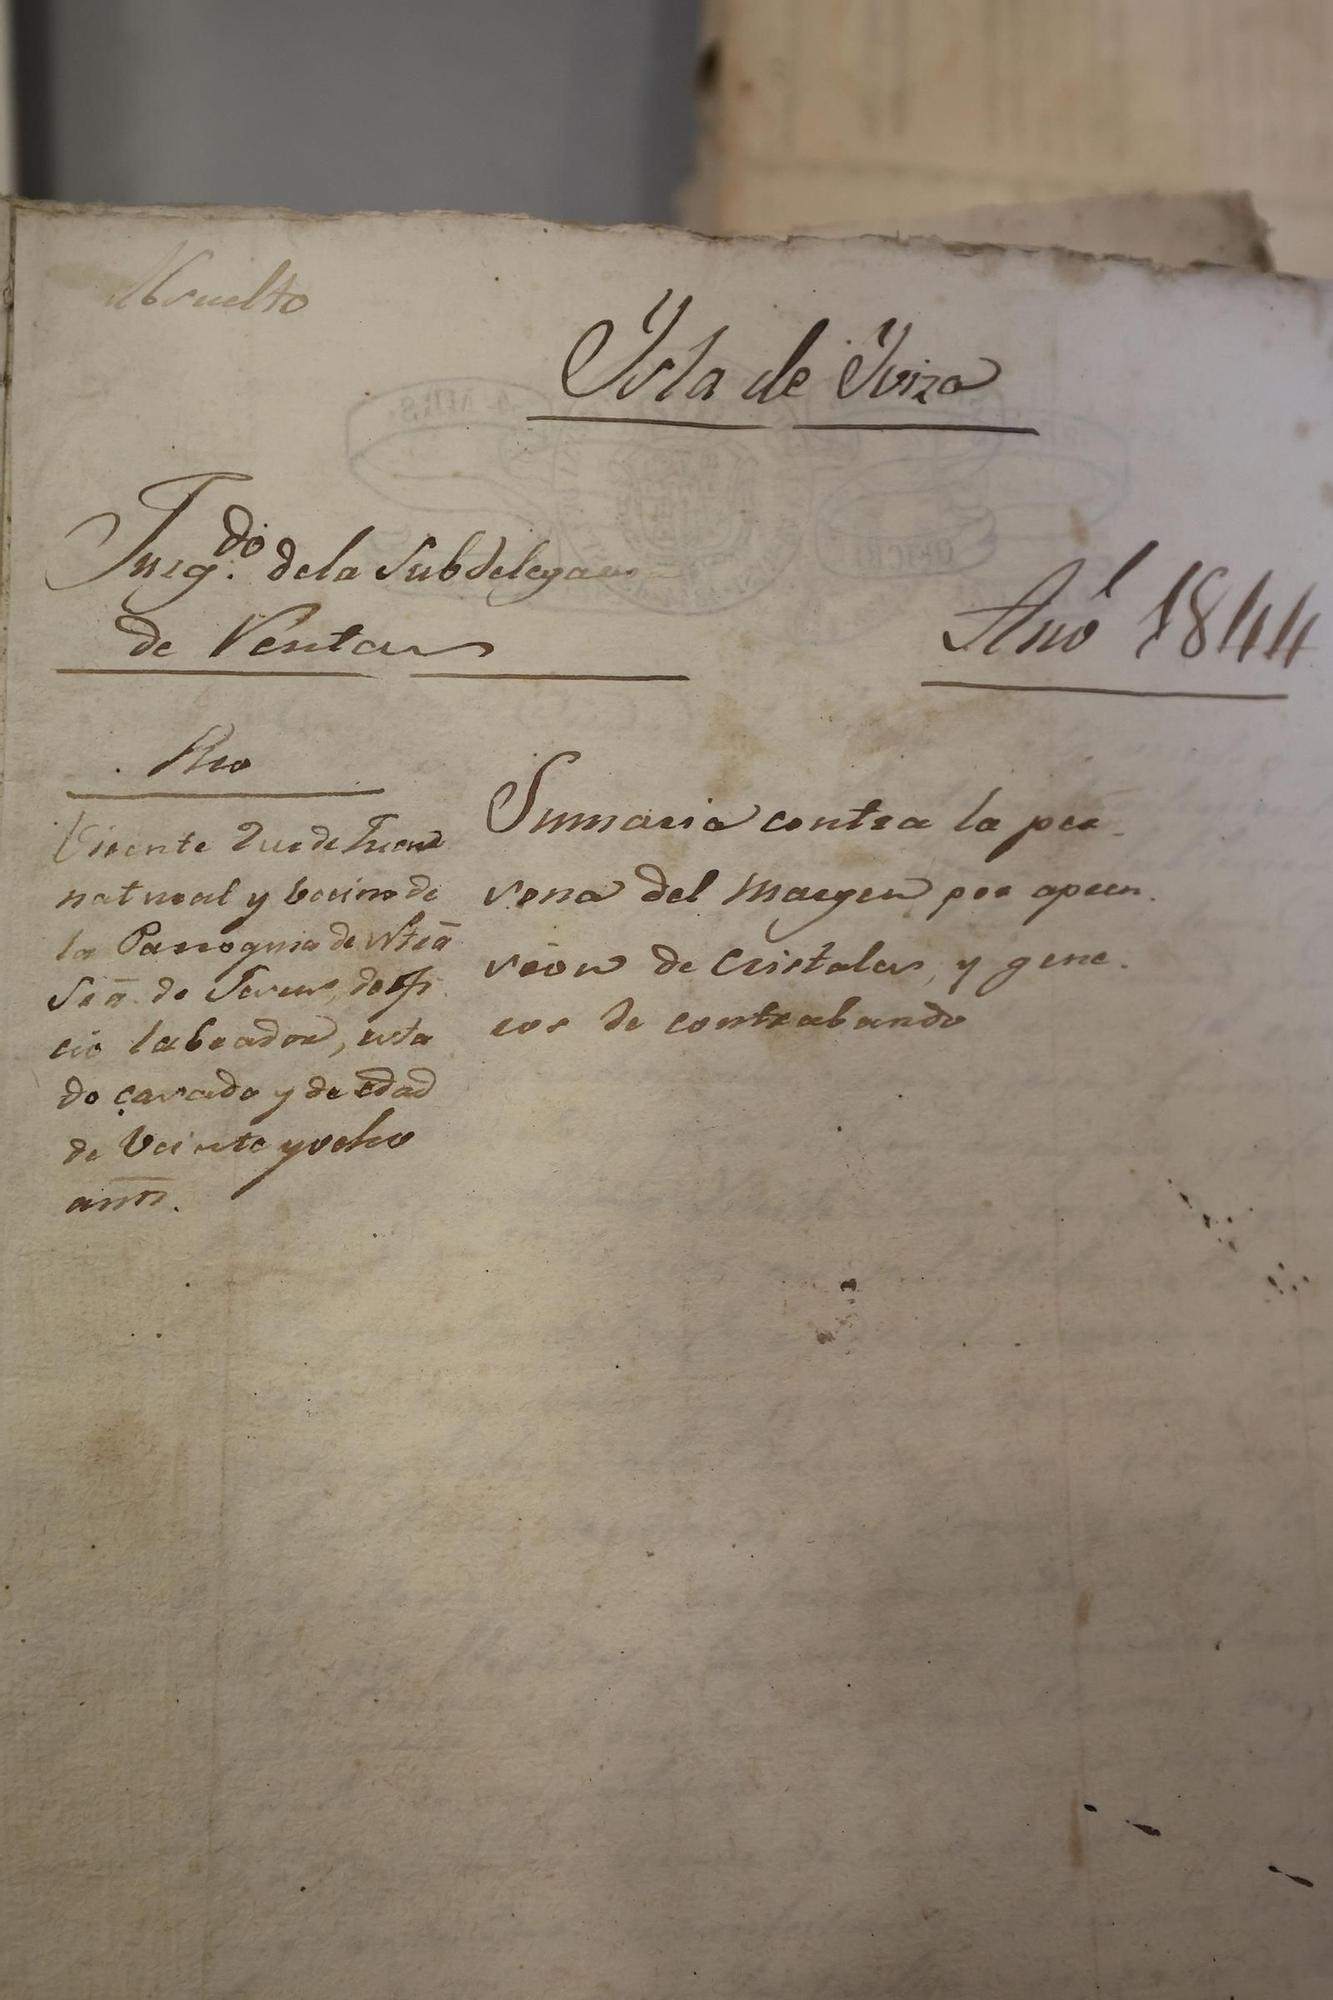 Absuelto
Ysla de Yviza
Juzg.do de la Subdelegacion
de Rentas
Año 1844
Reo
Vicente
natural y vecino de
la Parroquia de Ntrã
Srã. de Jesus, de ofi
cio labrador, esta
do casado y de edad
de veinte y ocho
años.
Sumaria contra la per-
sona del margen por apren-
sion de cristales, y gene-
ros de contrabando